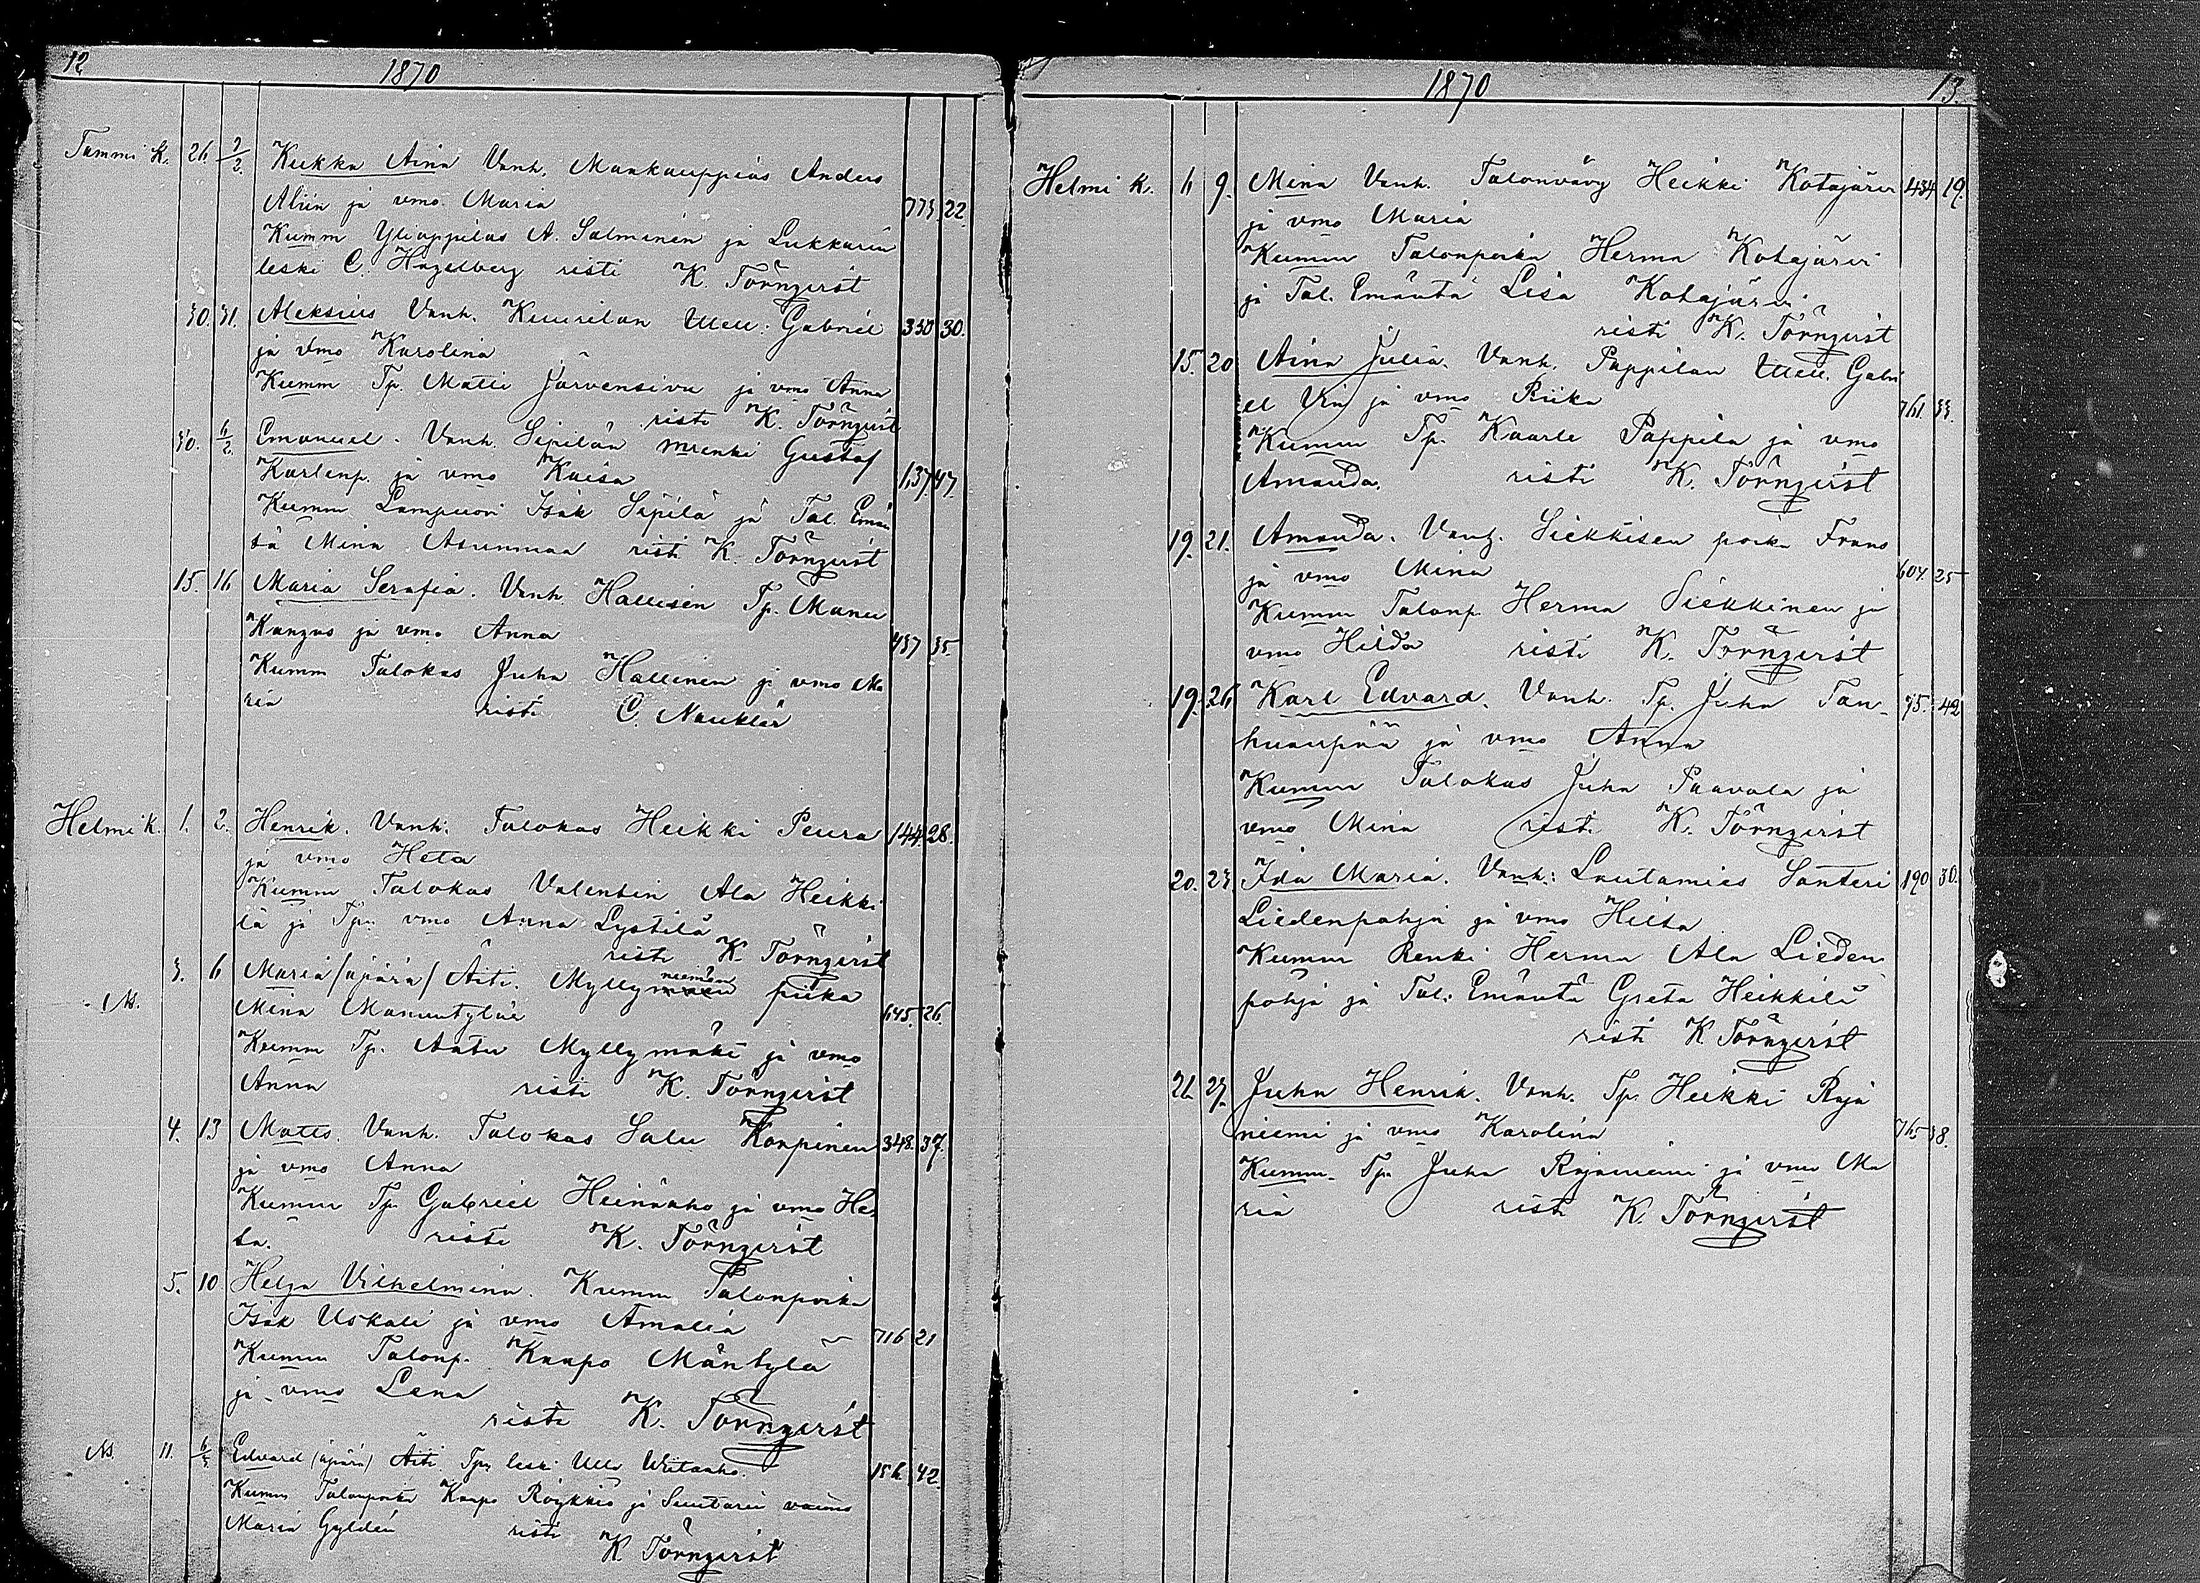 12
1870
Tammi k. 26 2/2 Kukka Aina Vanh. Maakauppias Anders
Alin ja vmo. Maria 773. 22.
Kumm Ylioppilas A. Salminen ja Lukkarin
leski C. Hagelberg risti K. Törnqvist
30. 31. Aleksius Vanh. Kuurilan Gabriel 330 30.
ja vmo Karolina
Kumm Tp. Matti Järvensivu ja vmo Anna
risti K. Törnqvist
30. 6/2. Emanuel. Vanh. Sipilän renki Gustaf
Karlenp. ja vmo Kaisa 137. 47.
Kumm Lampuori Isak Sipilä ja Tal. Emän
tä Mina Asunmaa risti K. Törnqvist
15. 16 Maria Serafia. Vanh. Hallisen Tp. Manu
Kangas ja vmo Anna 437 35.
Kumm Talokas Juha Hallinen ja vmo Ma
ria risti C. Naukler
Helmi k. 1. 2. Henrik. Vanh. Talokas Heikki Peura 144. 28.
ja vmo Heta
Kumm Talokas Valentin Ala Heikki
lä ja Tp. vmo Anna Lystilä
risti K. Törnqvist
3. 6 Maria /äpärä/ Äiti. Myllyniemen piika
Mina 645. 26.
Kumm Tp. Antu Myllymäki ja vmo
Anna risti K. Törnqvist
4. 13 Matts. Vanh. Talokas Salu Karpinen 348. 37.
ja vmo Anna
Kumm Tp. Gabriel Heinäaho ja vmo He-
ta. risti K. Törnqvist
5. 10 Helga Vilhelmina. Kumm Talonpoika
Isak Uskali ja vmo Amalia 716 21
Kumm Talonp. Kaapo Mäntylä
ja vmo Lena
risti K. Törnqvist
11. Edvard (äpärä) Äiti Tp. leski Ulla 156 42
Kumm Talonpoika Kaapo Röykkiö ja Suutarin vaimo
Maria Gyldén risti
K. Törnqvist
1870
13.
Helmi k. 6 9. Mina Vanh. Talonvävy Heikki Kotajärvi 434 19.
ja vmo Maria
Kumm Talonpoika Herma Kotajärvi
ja Tal. Emäntä Lisa Kotajärvi
risti K. Törnqvist
15. 20 Aina Julia. Vanh. Pappilan Gabri
el ja vmo Riika 761 33.
Kumm Tp. Kaarle Pappila ja vmo
Amanda. risti K. Törnqvist
19. 21. Amanda. Vanh. Siekkisen poika Frans
ja vmo Mina 607. 25
Kumm Talonp. Herma Siekkinen ja
vmo Hilda risti K. Törnqvist
19. 26 Karl Edvard. Vanh. Tp. Juha Tan- 95. 42
huanpää ja vmo Anna
Kumm Talokas Juha Paavola ja
vmo Mina risti K. Törnqvist
20. 23. Ida Maria. Vanh: Lautamies Santeri 190 30.
Liedenpohja ja vmo Hilta
Kumm Renki Herma Ala Lieden
pohja ja Tal. Emäntä Greta Heikkilä
risti K Törnqvist
21. 27. Juha Henrik. Vanh. Tp. Heikki Raja
niemi ja vmo Karolina 765 38.
Kumm. Tp. Juha Rajaniemi ja vmo Ma
ria risti K. Törnqvist